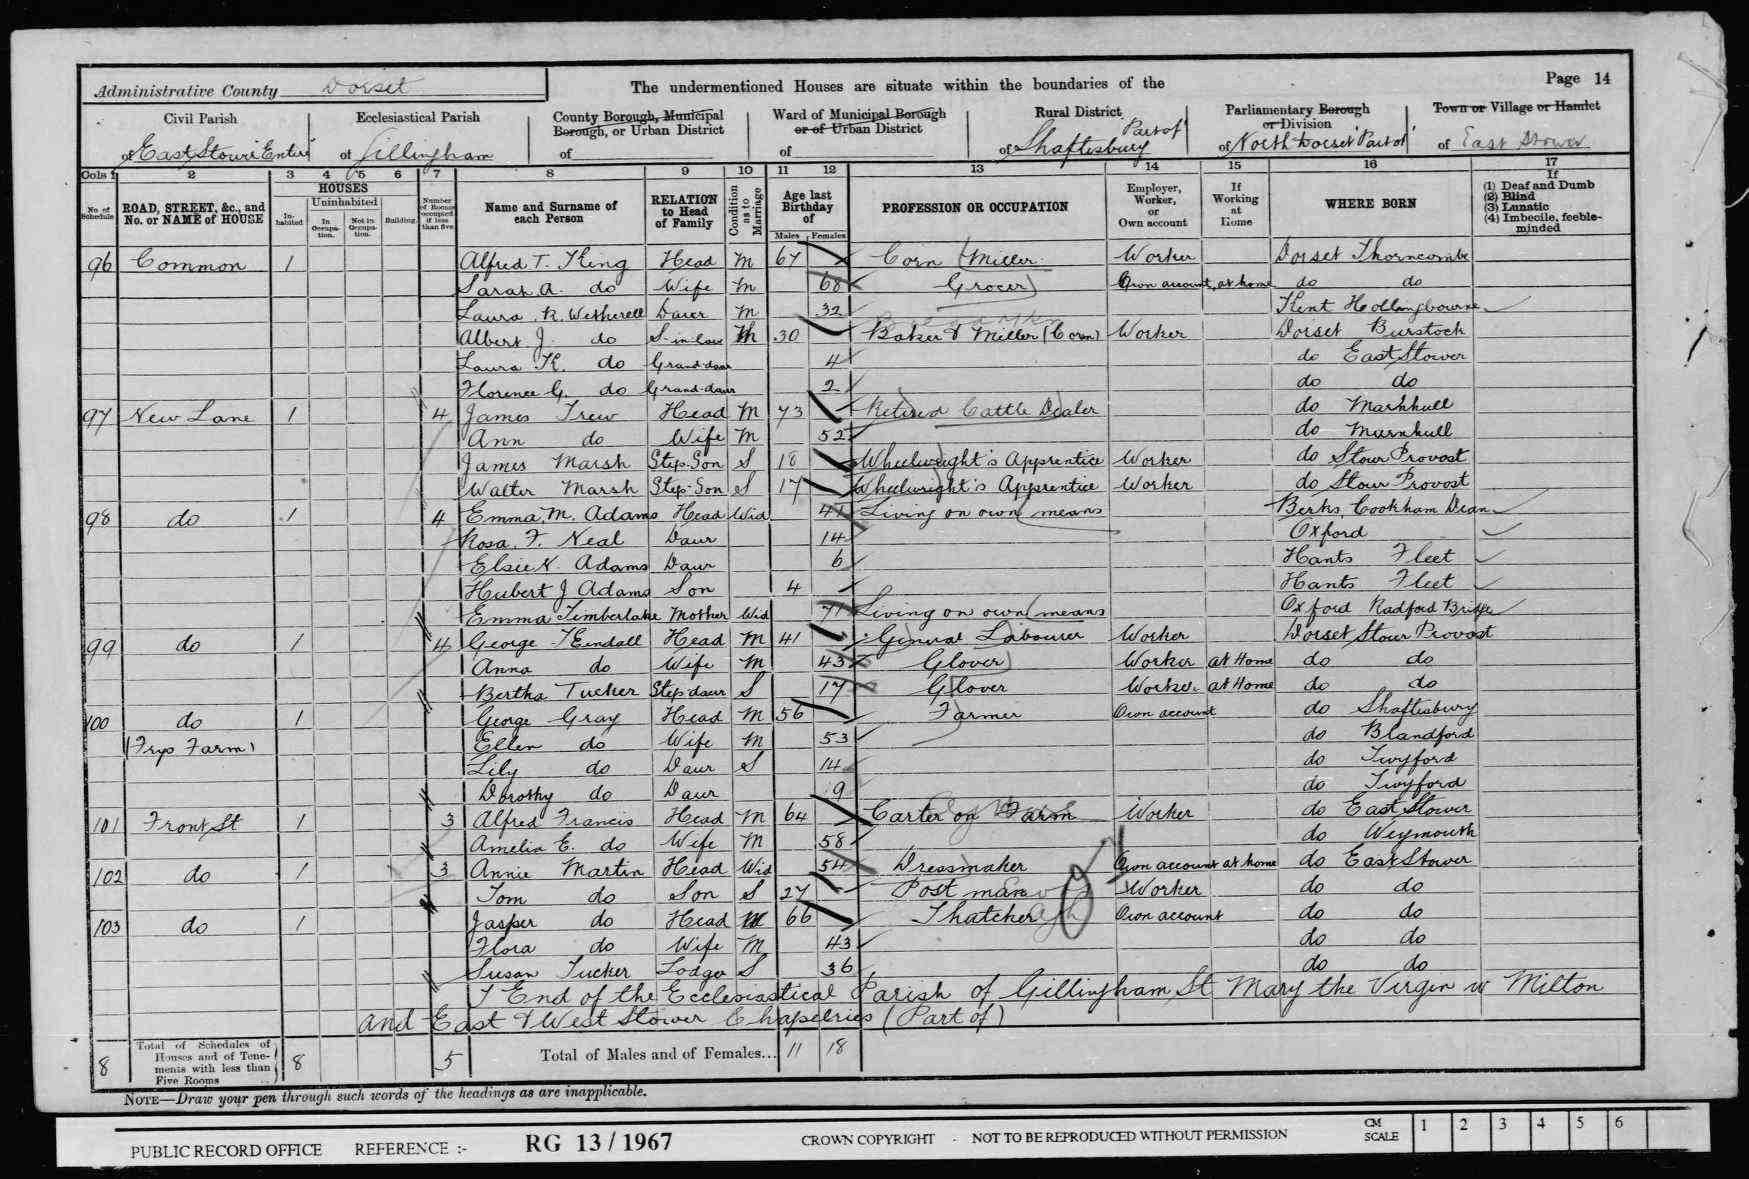 Administrative County Dorset
The undermentioned Houses are situate within the boundaries of the
Page 14
Civil Parish
of East Stour "Entire"
Ecclesiastical Parish
of Gillingham
County Borough, Municipal Borough, or Urban District
of
Ward of Municipal Borough or of Urban District
of
Rural District
of Shaftesbury "Part of"
Parliamentary Borough or Division
of North Dorset "Part of"
Town or Village or Hamlet
of East Stower
Cols 1 2 3 4 5 6 7 8 9 10 11 12 13 14 15 16 17
No. of Schedule
ROAD, STREET, &c., and No. or NAME of HOUSE
HOUSES
Inhabited
Uninhabited
In Occupation.
Not in Occupation.
Building.
Number of Rooms occupied if less than five
Name and Surname of each Person
RELATION to Head of Family
Condition as to Marriage
Age last Birthday of
Males Females
PROFESSION OR OCCUPATION
Employer, Worker, or Own account
If Working at Home
WHERE BORN
If
(1) Deaf and Dumb
(2) Blind
(3) Lunatic
(4) Imbecile, feeble-minded
96 Common 1 Alfred T. King Head M 67 Corn Miller Worker Dorset Thorncombe
Sarah A. do Wife M 68 Grocer Own account at home do do
Laura R. Wetherell Daur M 32 Kent Hollingbourne
Albert J. do S-in-law M 30 Baker & Miller (Corn) Worker Dorset Burstock
Laura K. do Grand-daur 4 do East Stower
Florence G. do Grand-daur 2 do do
97 New Lane 1 4 James Trew Head M 73 Retired Cattle Dealer do Marnhull
Ann do Wife M 52 do Marnhull
James Marsh Step-Son S 18 Wheelwright's Apprentice Worker do Stour Provost
Walter Marsh Step-Son S 17 Wheelwright's Apprentice Worker do Stour Provost
98 do 1 4 Emma M. Adams Head Wid 41 Living on own means Berks Cookham Dean
Rosa F. Neal Daur 14 Oxford
Elsie N. Adams Daur 6 Hants Fleet
Hubert J Adams Son 4 Hants Fleet
Emma Timberlake Mother Wid 71 Living on own means Oxford Radford Bridge
99 do 1 4 George Kendall Head M 41 General Labourer Worker Dorset Stour Provost
Anna do Wife M 43 Glover Worker at Home do do
Bertha Tucker Step daur S 17 Glover Worker at Home do do
100 do 1 George Gray Head M 56 Farmer Own account do Shaftesbury
(Frys Farm) Ellen do Wife M 53 do Blandford
Lily do Daur S 14 do Twyford
Dorothy do Daur 9 do Twyford
101 Front St 1 3 Alfred Francis Head M 64 Carter on Farm Worker do East Stower
Amelia E. do Wife M 58 do Weymouth
102 do 1 3 Annie Martin Head Wid 54 Dressmaker Own account at home do East Stower
Tom do Son S 27 Post man Worker do do
103 do 1 Jasper do Head M 66 Thatcher Own account do do
Flora do Wife M 43 do do
Susan Tucker Lodger S 36 do do
End of the Ecclesiastical Parish of Gillingham St Mary the Virgin w Milton
and East & West Stower Chapelries (Part of)
8 Total of Schedules of Houses and of Tenements with less than Five Rooms 8 5 Total of Males and of Females... 11 18
NOTE—Draw your pen through such words of the headings as are inapplicable.
PUBLIC RECORD OFFICE REFERENCE :- RG 13/1967 CROWN COPYRIGHT - NOT TO BE REPRODUCED WITHOUT PERMISSION
CM SCALE 1 2 3 4 5 6